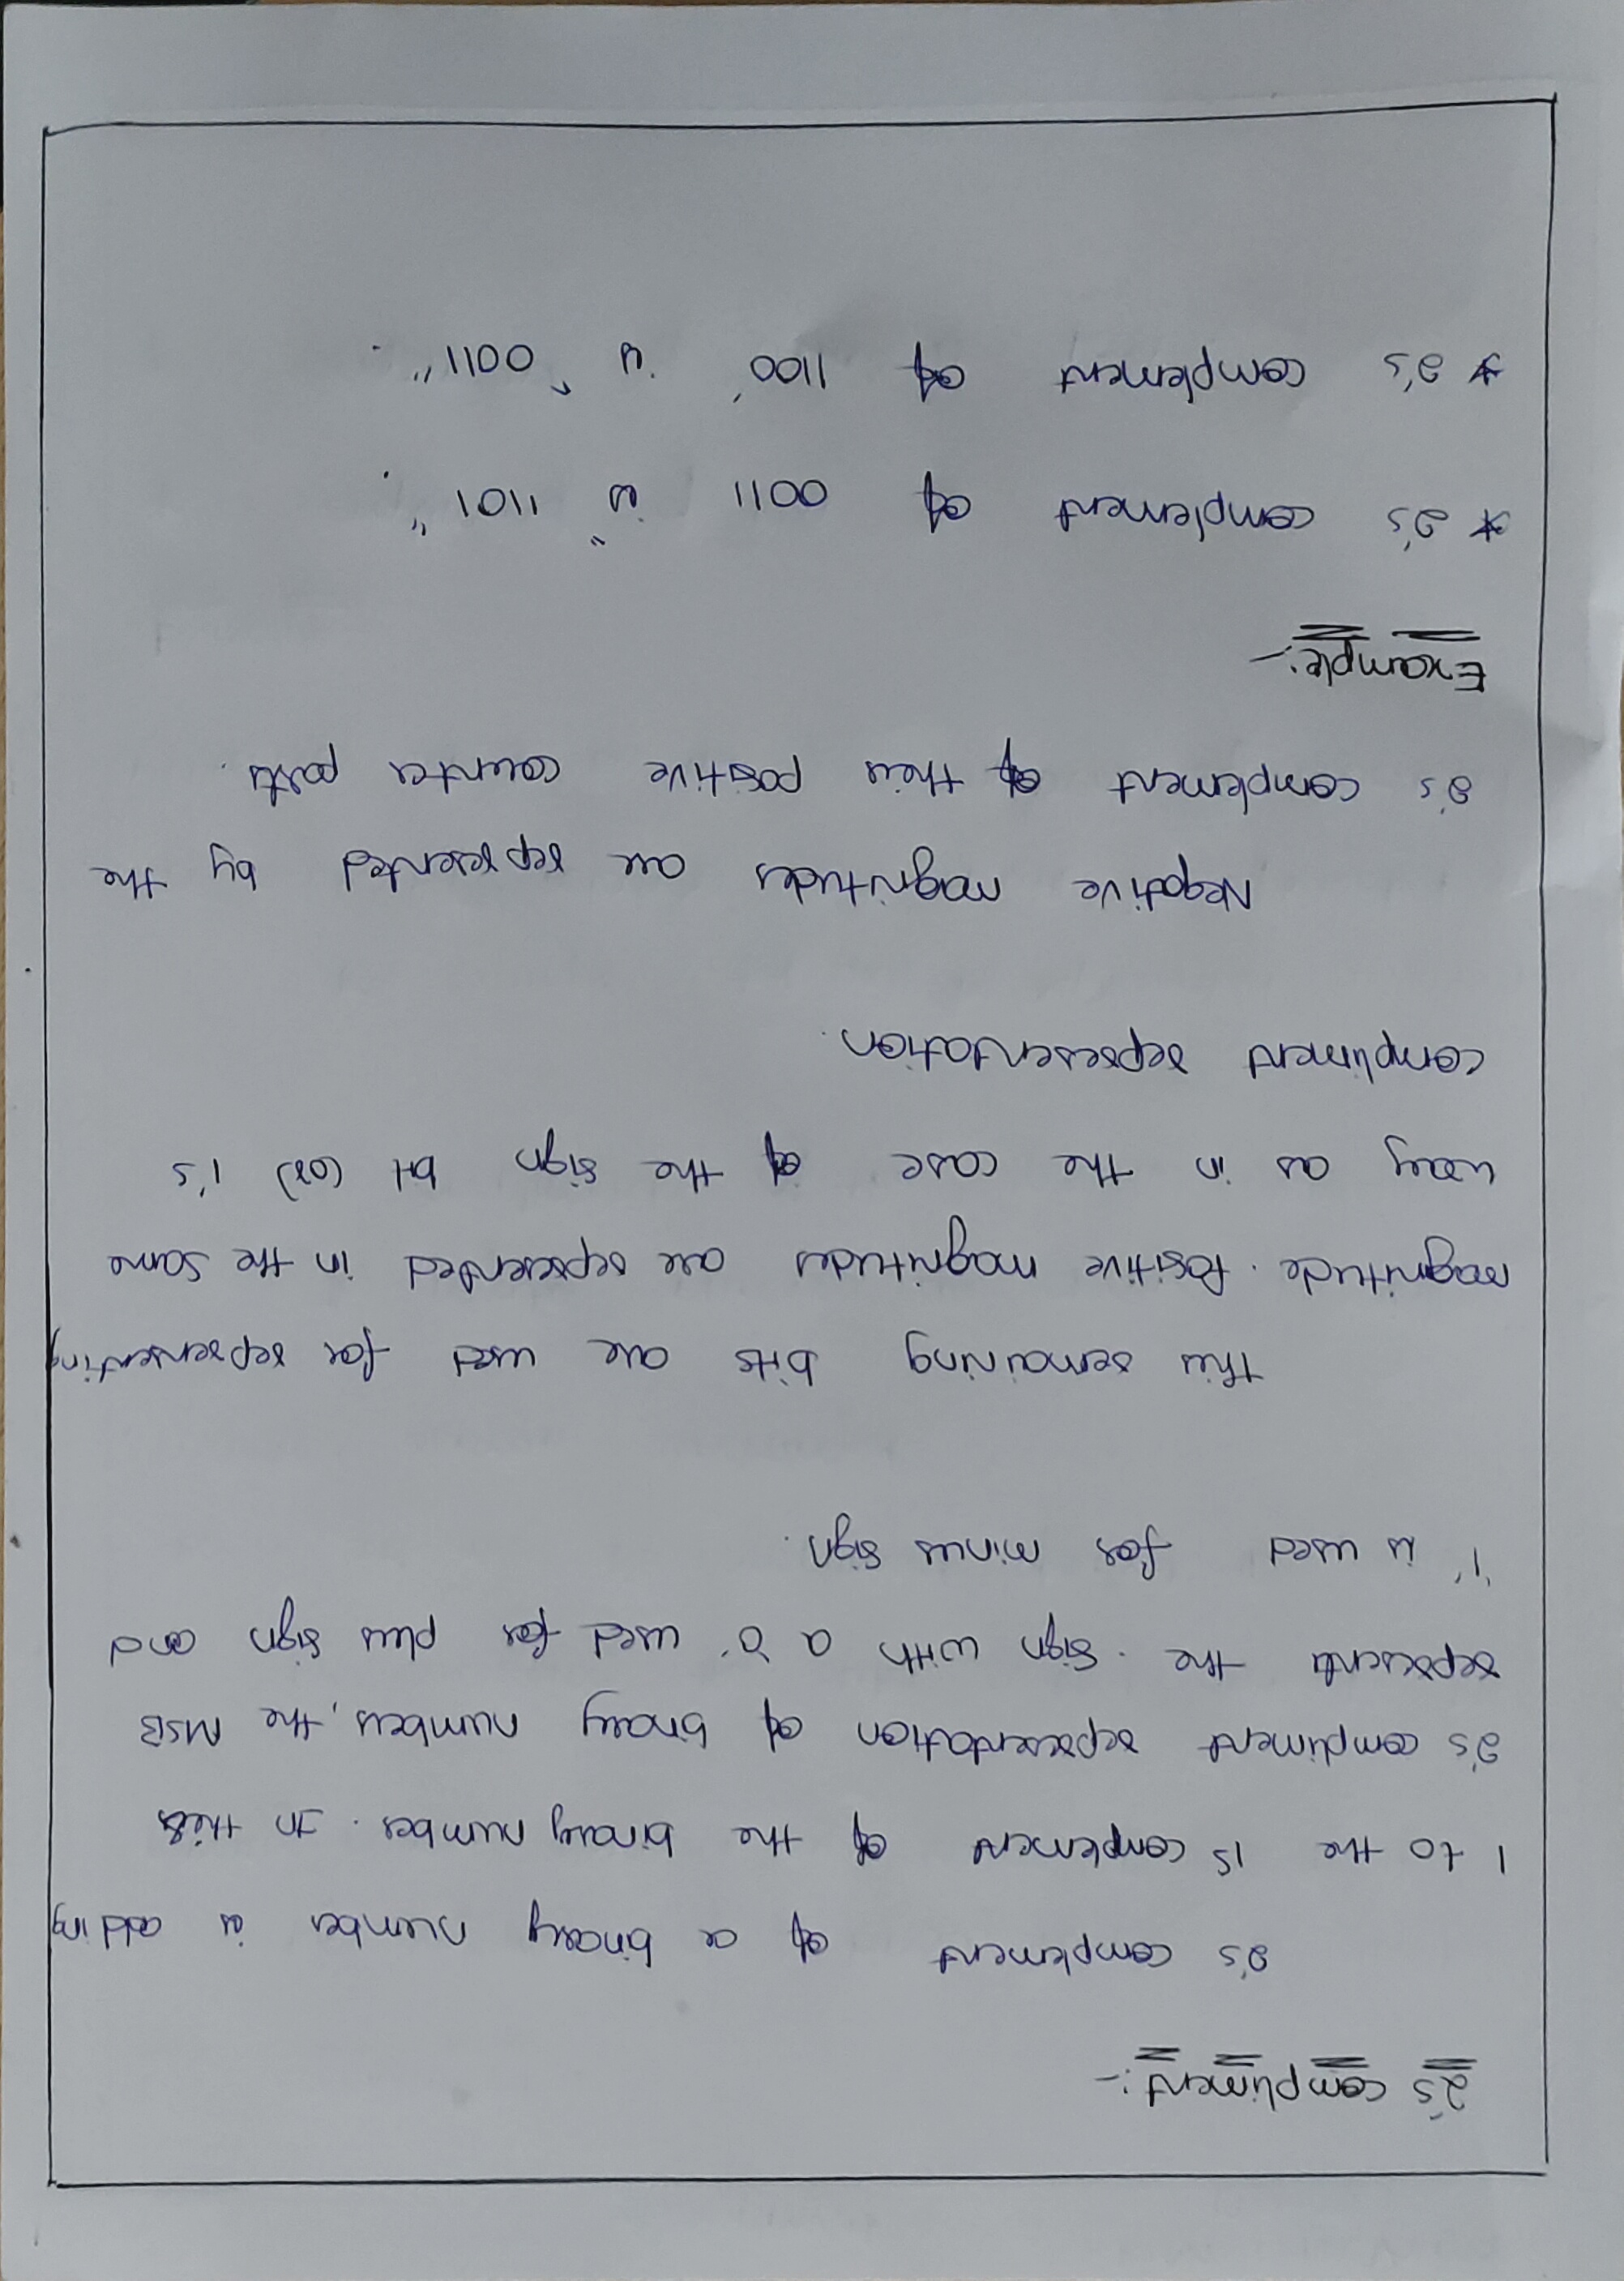 2's compliment :-
2's complement of a binary number is adding
1 to the 1s complement of the binary number. In this
2's compliment representation of binary numbers, the MSB
represents the sign. With a '0' used for plus sign and
'1' is used for minus sign.
This remaining bits are used for representing
magnitude. Positive magnitudes are represented in the same
way as in the case of the sign bit (or) 1's
compliment representation.
Negative magnitudes are represented by the
2's complement of their positive counter parts.
Example:-
* 2's complement of 0011 is "1101".
* 2's complement of 1100' is "0011".